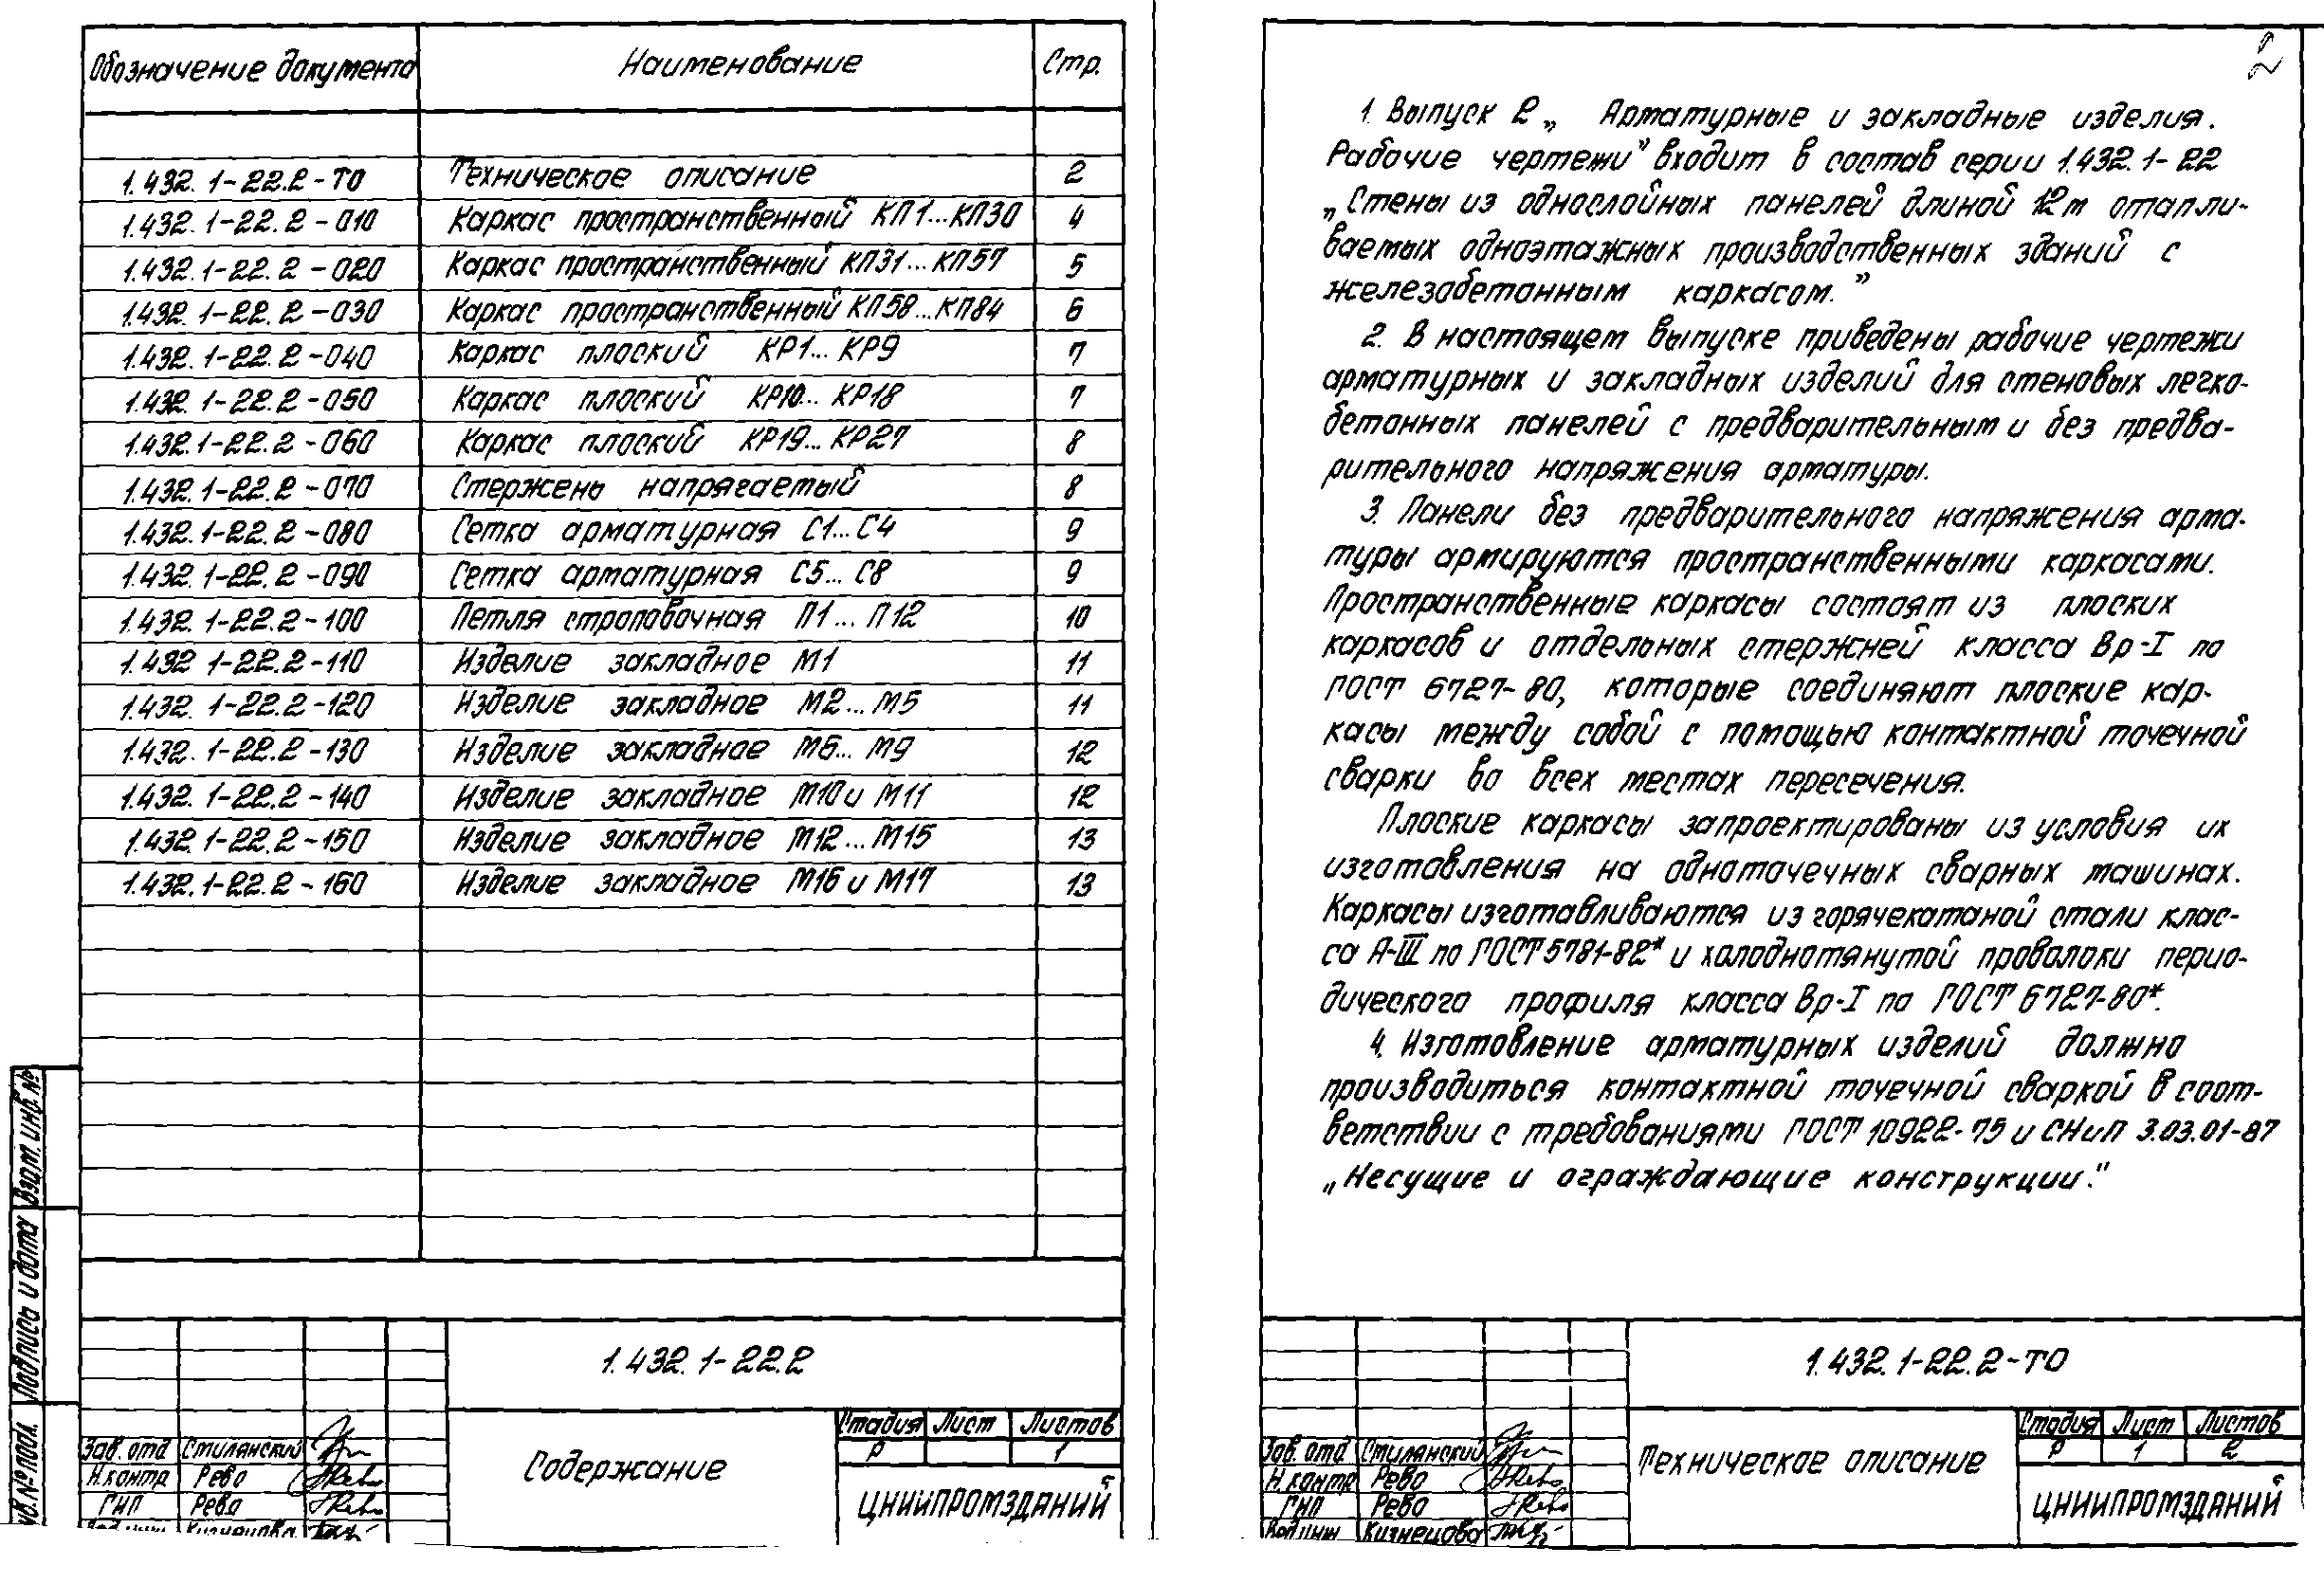 Обозначение документа Наименование Стр.
1.432.1-22.2-ТО Техническое описание 2
1.432.1-22.2-010 Каркас пространственный КП1...КП30 4
1.432.1-22.2-020 Каркас пространственный КП31...КП57 5
1.432.1-22.2-030 Каркас пространственный КП58...КП84 6
1.432.1-22.2-040 Каркас плоский КР1...КР9 7
1.432.1-22.2-050 Каркас плоский КР10...КР18 7
1.432.1-22.2-060 Каркас плоский КР19...КР27 8
1.432.1-22.2-070 Стержень напрягаемый 8
1.432.1-22.2-080 Сетка арматурная С1...С4 9
1.432.1-22.2-090 Сетка арматурная С5...С8 9
1.432.1-22.2-100 Петля строповочная П1...П12 10
1.432 1-22.2-110 Изделие закладное М1 11
1.432.1-22.2-120 Изделие закладное М2...М5 11
1.432.1-22.2-130 Изделие закладное М6...М9 12
1.432.1-22.2-140 Изделие закладное М10 и М11 12
1.432.1-22.2-150 Изделие закладное М12...М15 13
1.432.1-22.2-160 Изделие закладное М16 и М17 13
Взам. инв. №
Подпись и дата
№ подл.
1.432.1-22.2
Стадия Лист Листов
Р 1
Зав. отд Стилянский
Н.контр Рево
ГИП Рево
Кузнецова
Содержание
ЦНИИПРОМЗДАНИЙ
2
1. Выпуск 2 „ Арматурные и закладные изделия.
Рабочие чертежи" входит в состав серии 1.432.1-22
„Стены из однослойных панелей длиной 12м отапли-
ваемых одноэтажных производственных зданий с
железобетонным каркасом."
2. В настоящем выпуске приведены рабочие чертежи
арматурных и закладных изделий для стеновых легко-
бетонных панелей с предварительным и без предва-
рительного напряжения арматуры.
3. Панели без предварительного напряжения арма-
туры армируются пространственными каркасами.
Пространственные каркасы состоят из плоских
каркасов и отдельных стержней класса Вр-I по
ГОСТ 6727-80, которые соединяют плоские кар-
касы между собой с помощью контактной точечной
сварки во всех местах пересечения.
Плоские каркасы запроектированы из условия их
изготовления на одноточечных сварных машинах.
Каркасы изготавливаются из горячекатаной стали клас-
са А-III по ГОСТ 5781-82* и холоднотянутой проволоки перио-
дического профиля класса Вр-I по ГОСТ 6727-80*.
4. Изготовление арматурных изделий должно
производиться контактной точечной сваркой в соот-
ветствии с требованиями ГОСТ 10922-75 и СНиП 3.03.01-87
„Несущие и ограждающие конструкции."
1.432.1-22.2-ТО
Стадия Лист Листов
Р 1 2
Зав. отд Стилянский
Н.контр Рево
ГИП Рево
Вед.инж Кузнецова
Техническое описание
ЦНИИПРОМЗДАНИЙ